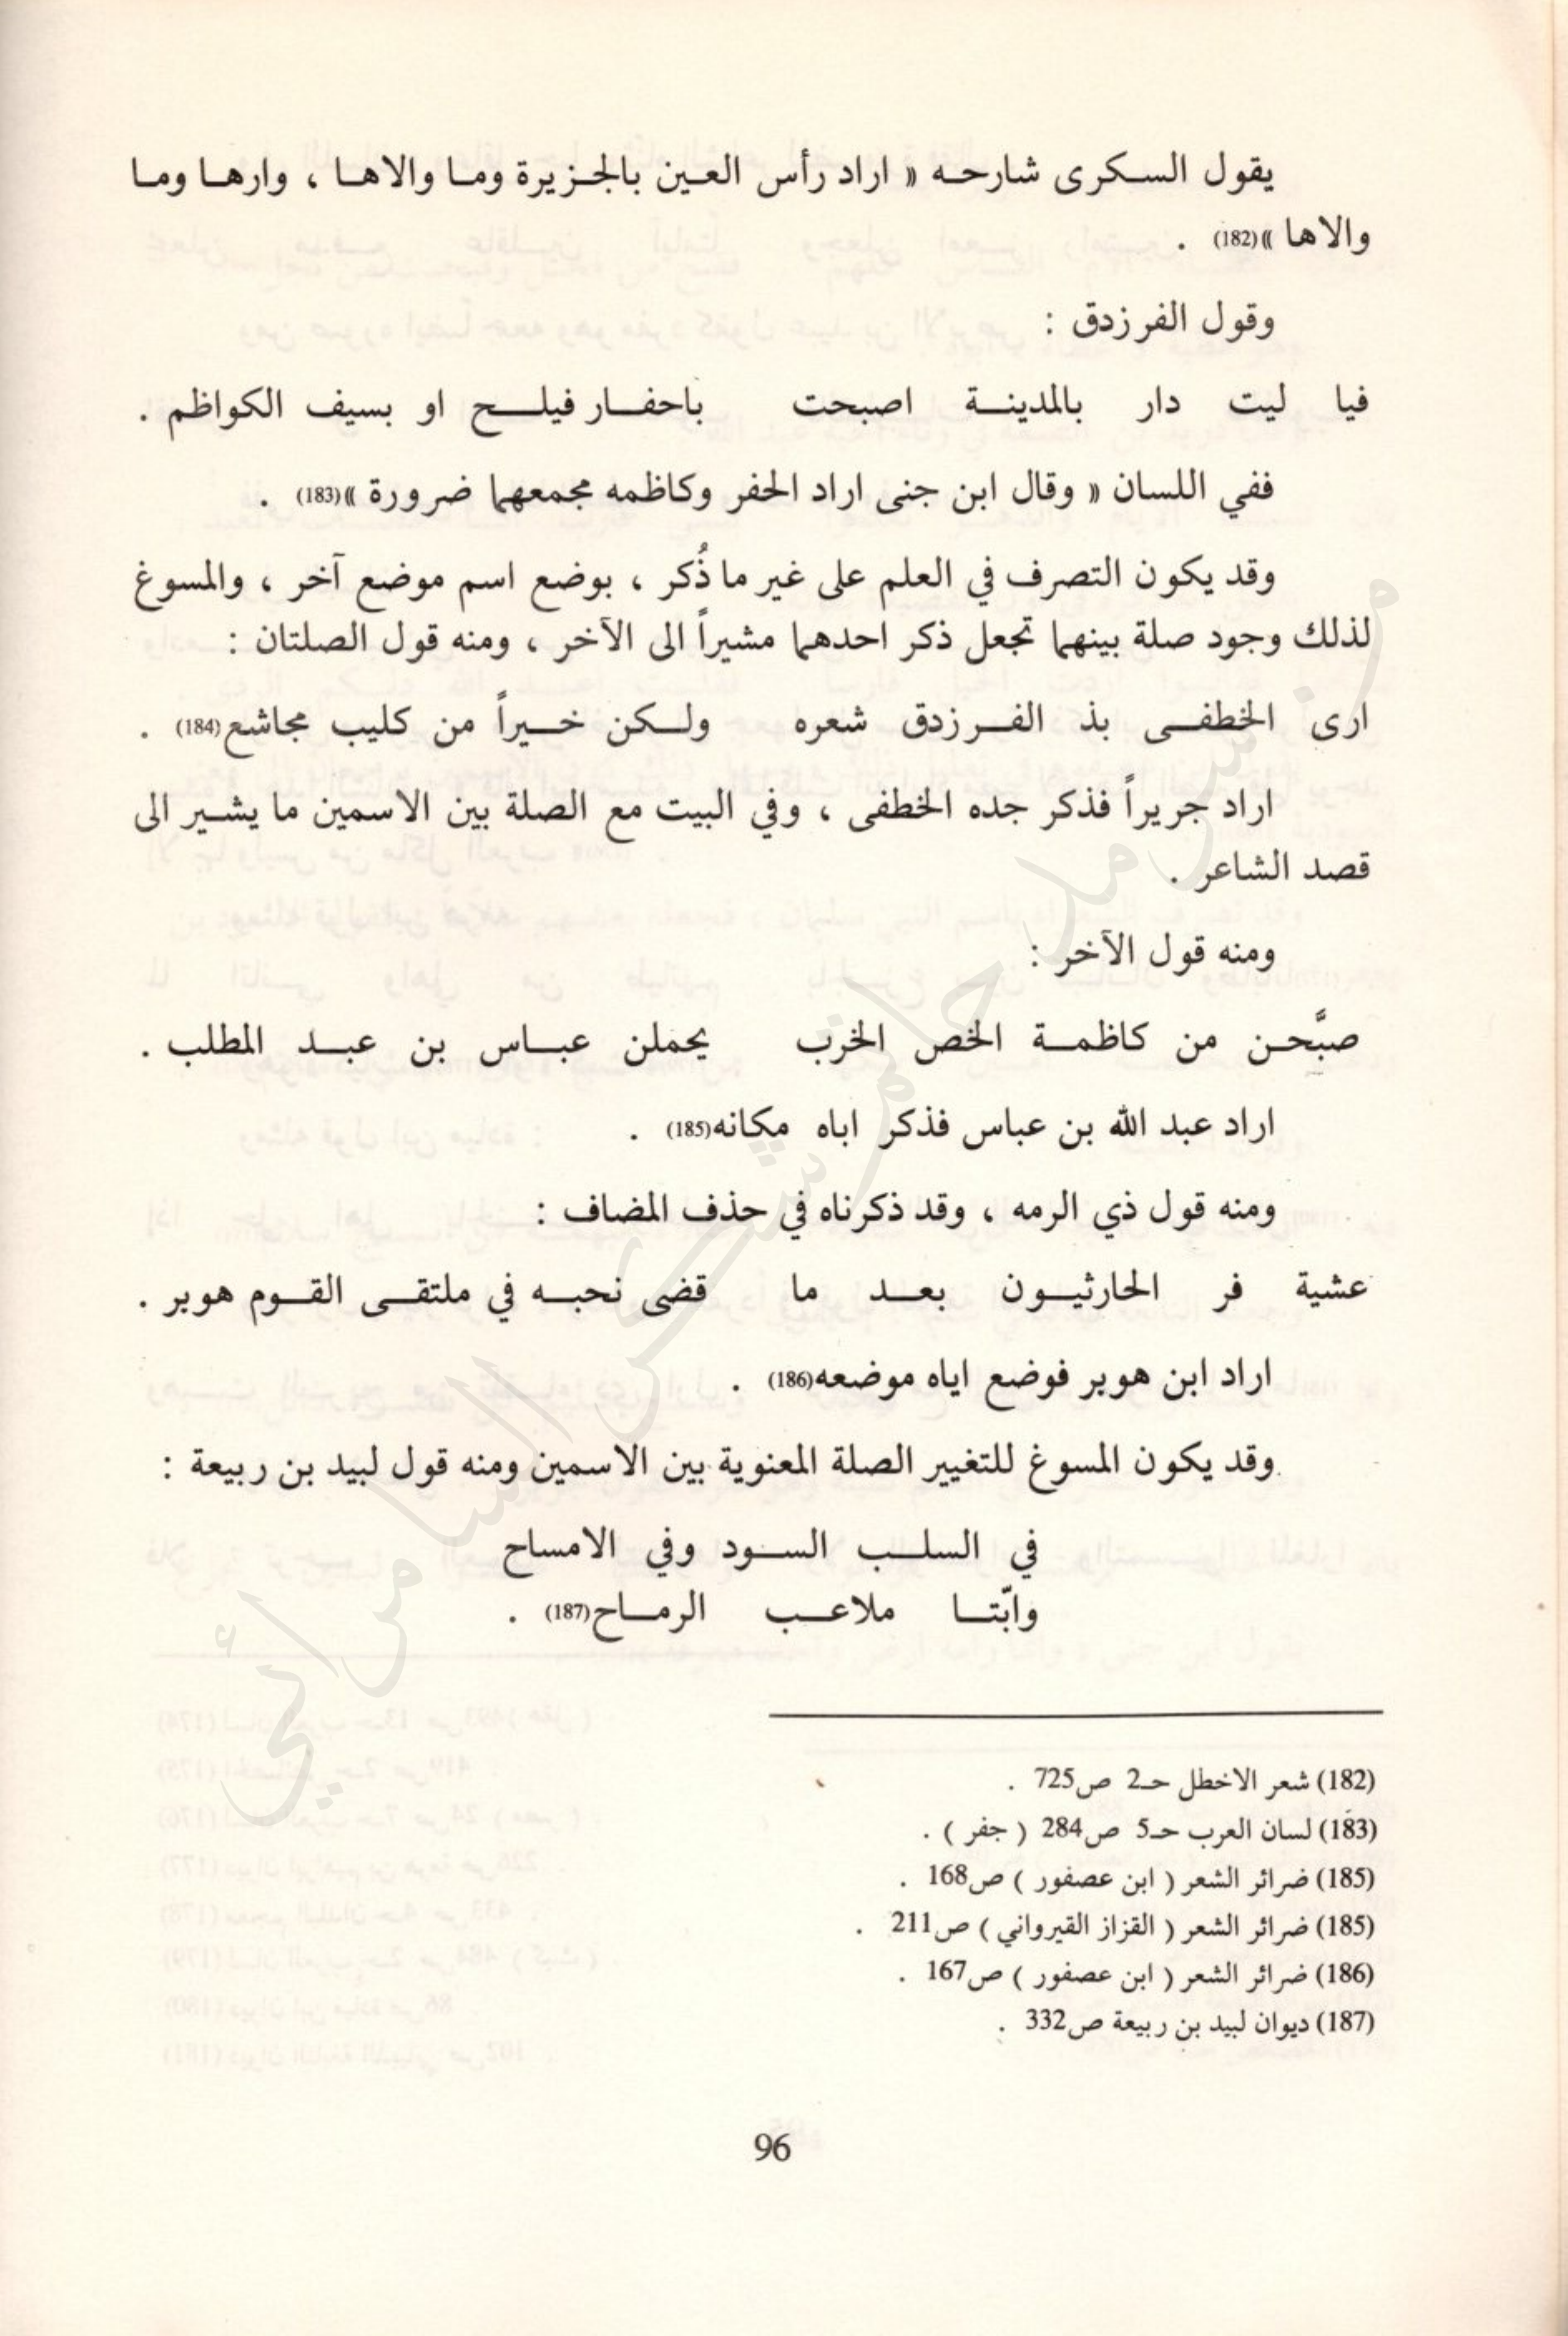 يقول السكرى شارحه « اراد رأس العين بالجزيرة وما والاها ، وارها وما
والاها »(182) .
وقول الفرزدق :
فيا ليت دار بالمدينة اصبحت باحفار فيلج او بسيف الكواظم .
ففي اللسان « وقال ابن جنى اراد الحفر وكاظمه مجمعهما ضرورة »(183) .
وقد يكون التصرف في العلم على غير ما ذُكر ، بوضع اسم موضع آخر ، والمسوغ
لذلك وجود صلة بينهما تجعل ذكر احدهما مشيراً الى الآخر ، ومنه قول الصلتان :
ارى الخطفى بذ الفرزدق شعره ولكن خيراً من كليب مجاشع(184) .
اراد جريراً فذكر جده الخطفى ، وفي البيت مع الصلة بين الاسمين ما يشير الى
قصد الشاعر .
ومنه قول الآخر :
صبَّحن من كاظمة الخص الخرب يحملن عباس بن عبد المطلب .
اراد عبد الله بن عباس فذكر اباه مكانه(185) .
ومنه قول ذي الرمه ، وقد ذكرناه في حذف المضاف :
عشية فر الحارثيون بعد ما قضى نحبه في ملتقى القوم هوبر .
اراد ابن هوبر فوضع اياه موضعه(186) .
وقد يكون المسوغ للتغيير الصلة المعنوية بين الاسمين ومنه قول لبيد بن ربيعة :
في السلب السود وفي الامساح
وابّتا ملاعب الرماح(187) .
(182) شعر الاخطل حـ2 ص725 .
(183) لسان العرب حـ5 ص284 ( جفر ) .
(185) ضرائر الشعر ( ابن عصفور ) ص168 .
(185) ضرائر الشعر ( القزاز القيرواني ) ص211 .
(186) ضرائر الشعر ( ابن عصفور ) ص167 .
(187) ديوان لبيد بن ربيعة ص332 .
96